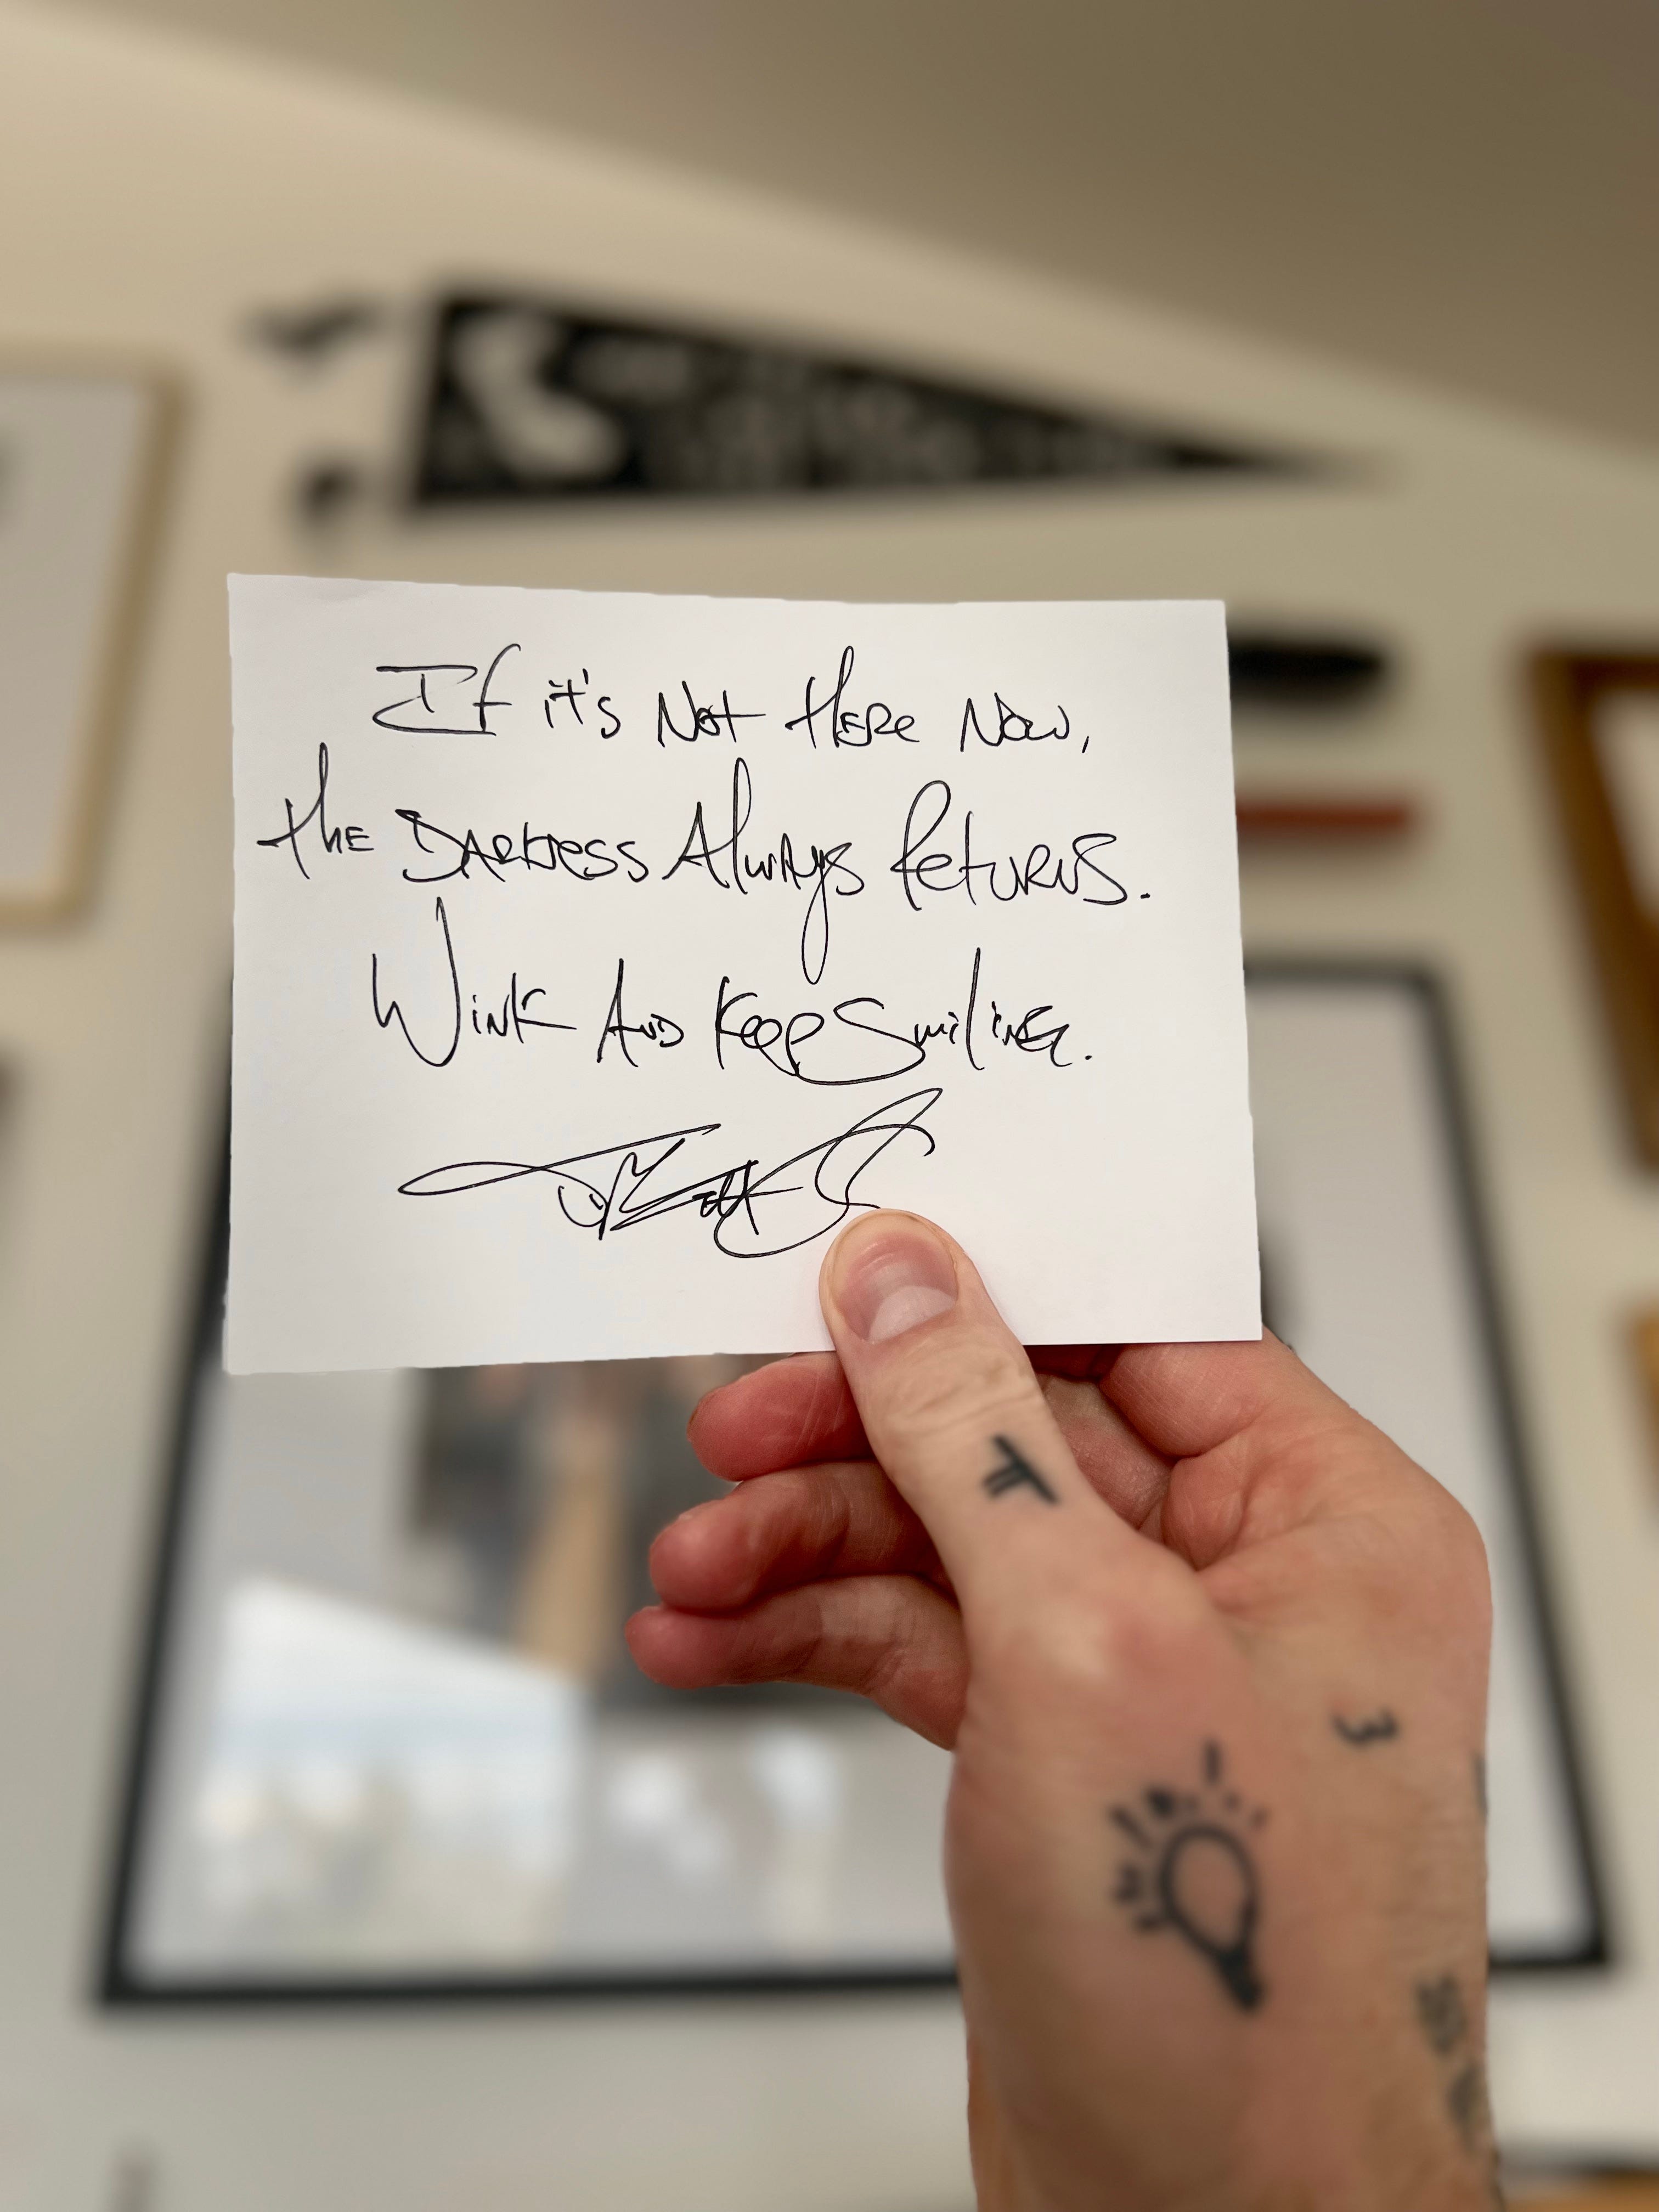 If it's Not Here Now,
the Darkness Always Returns.
Wink And Keep Smiling.